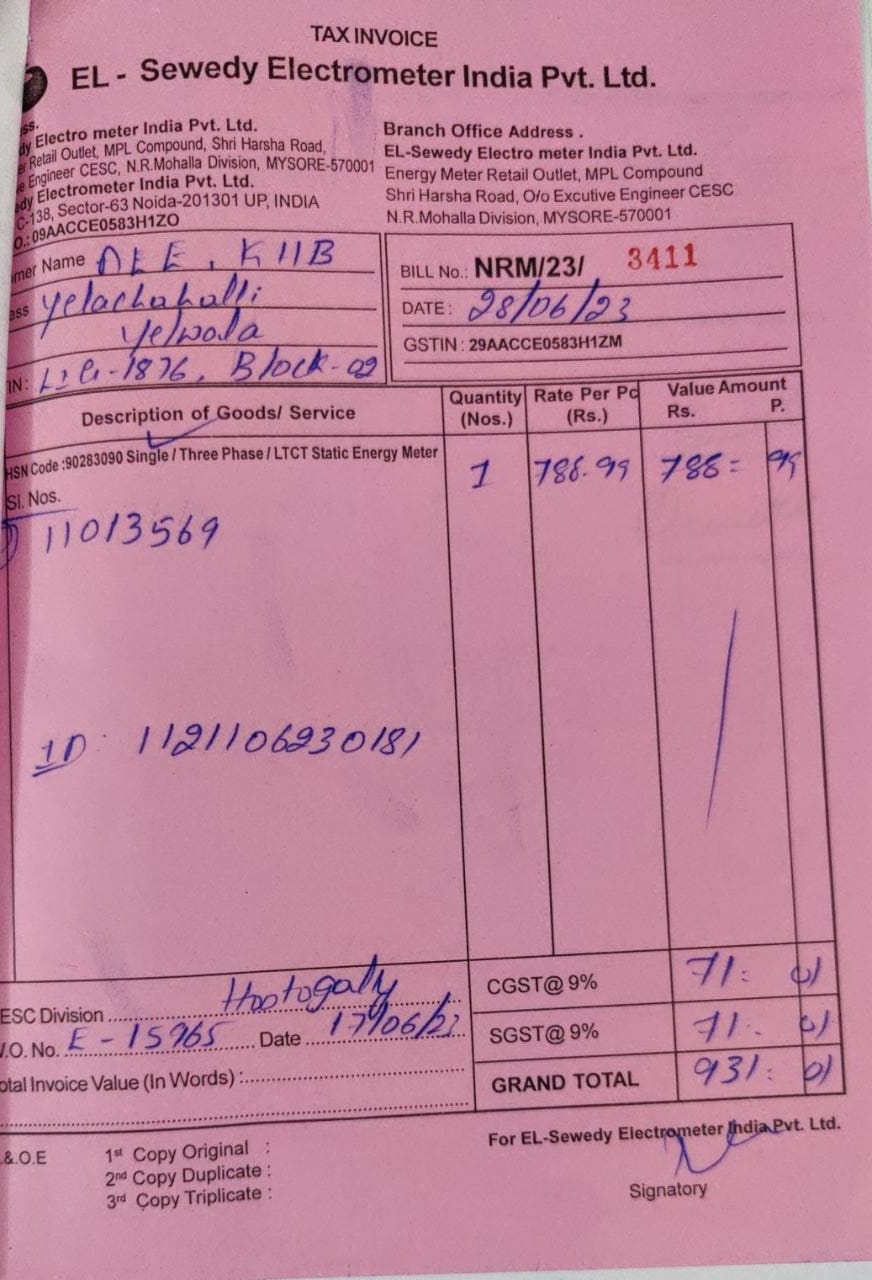 TAX INVOICE
EL - Sewedy Electrometer India Pvt. Ltd.
ss.
dy Electro meter India Pvt. Ltd.
er Retail Outlet, MPL Compound, Shri Harsha Road,
e Engineer CESC, N.R.Mohalla Division, MYSORE-570001
edy Electrometer India Pvt. Ltd.
C-138, Sector-63 Noida-201301 UP, INDIA
O.: 09AACCE0583H1ZO
Branch Office Address .
EL-Sewedy Electro meter India Pvt. Ltd.
Energy Meter Retail Outlet, MPL Compound
Shri Harsha Road, O/o Excutive Engineer CESC
N.R.Mohalla Division, MYSORE-570001
mer Name AEE, KHB
ess Yelachahalli
Yelwala
IN: LIG-1876, Block-02
BILL No.: NRM/23/ 3411
DATE: 28/06/23
GSTIN : 29AACCE0583H1ZM
Description of Goods/ Service Quantity (Nos.) Rate Per Pc (Rs.) Value Amount Rs. P.
HSN Code :90283090 Single / Three Phase / LTCT Static Energy Meter 1 788.99 788= 99
Sl. Nos.
1) 11013569
ID: 1121106230181
ESC Division Hootogally
CGST@ 9% 71: 01
V.O. No. E-15965 Date 17/06/23
SGST@ 9% 71: 01
otal Invoice Value (In Words) :
GRAND TOTAL 931: 01
.&.O.E
1st Copy Original :
2nd Copy Duplicate :
3rd Copy Triplicate :
For EL-Sewedy Electrometer India Pvt. Ltd.
Signatory